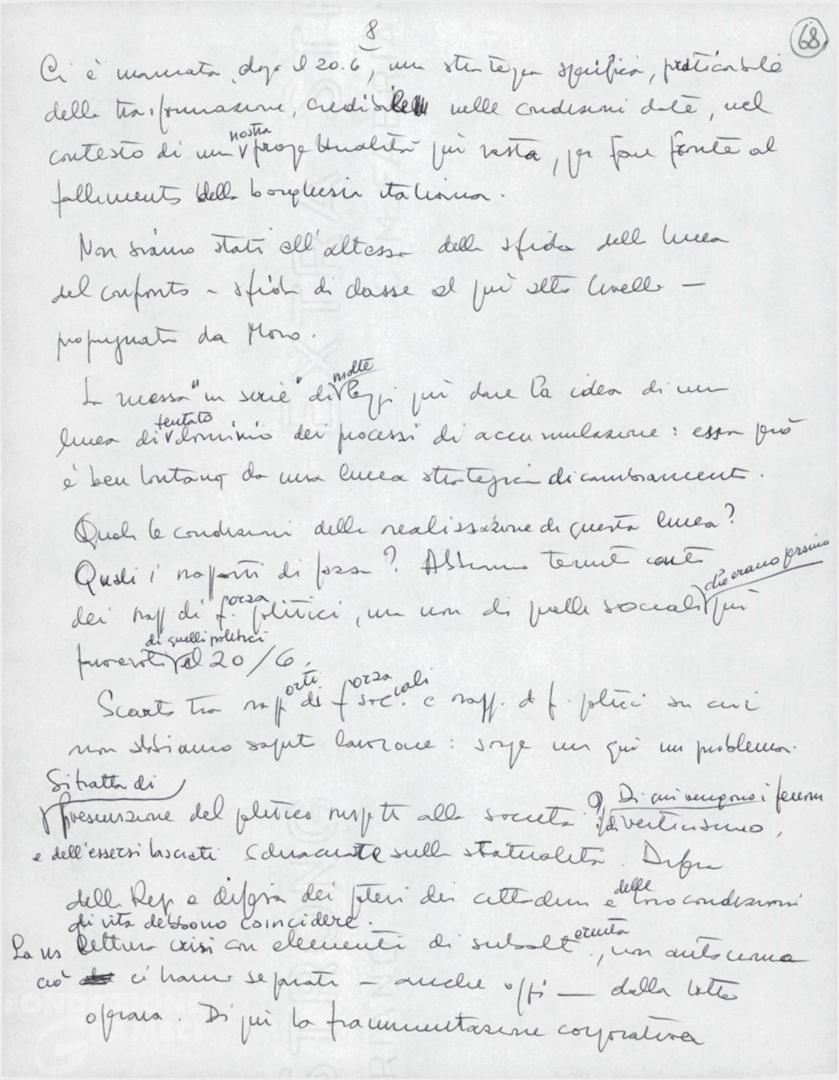 8
68
Ci è mancata, dopo il 20.6, una strategia specifica, praticabile
della trasformazione, credibile nelle condizioni date, nel
contesto di una nostra progettualità più vasta, per fare fronte al
fallimento della borghesia italiana.
Non siamo stati all'altezza della sfida della linea
del confronto – sfida di classe al più alto livello –
propugnata da Moro.
La messa "in serie" di molte leggi può dare la idea di una
linea di tentato dominio dei processi di accumulazione: essa però
è ben lontana da una linea strategica di cambiamento.
Quali le condizioni della realizzazione di questa linea?
Quali i rapporti di forza? Abbiamo tenuto conto
dei rapp di f.orza politici, ma non di quelle sociali che erano persino più
favorevoli di quelli politici al 20/6.
Scarto tra rapporti di forza sociali e rapp. di f. politici su cui
non abbiamo saputo lavorare: sorge qui un problema.
Si tratta di
presunzione del politico rispetto alla società. Di qui vengono i fenom
di verticismo,
e dell'essersi lasciati schiacciare sulla statualità. Difesa
della Rep e difesa dei poteri dei cittadini e delle loro condizioni
di vita debbono coincidere.
La ns lettura crisi con elementi di subalternità, non autonoma
ciò ci hanno separati – anche oggi – dalla lotta
operaia. Di qui la frammentazione corporativa
FONDAZIONE
GRAMSCI